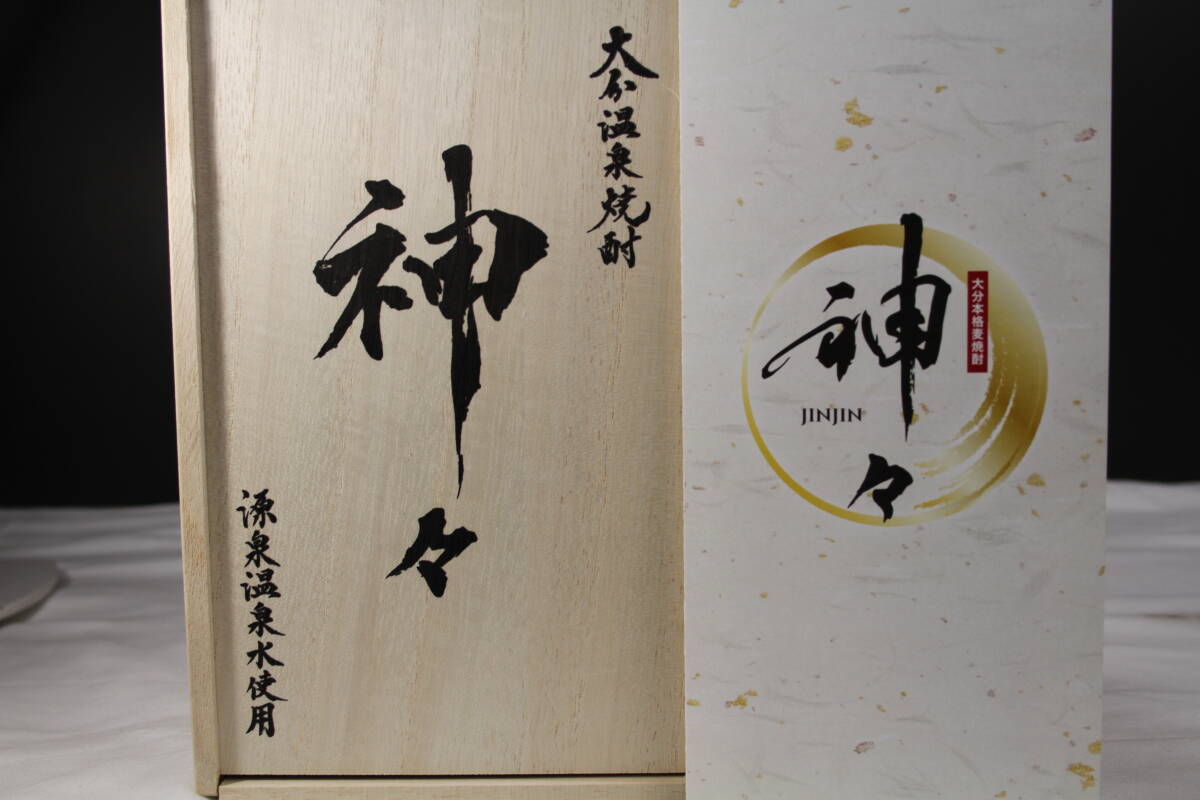 大分温泉焼酎
神々
源泉温泉水使用
大分本格麦焼酎
神々
JINJIN